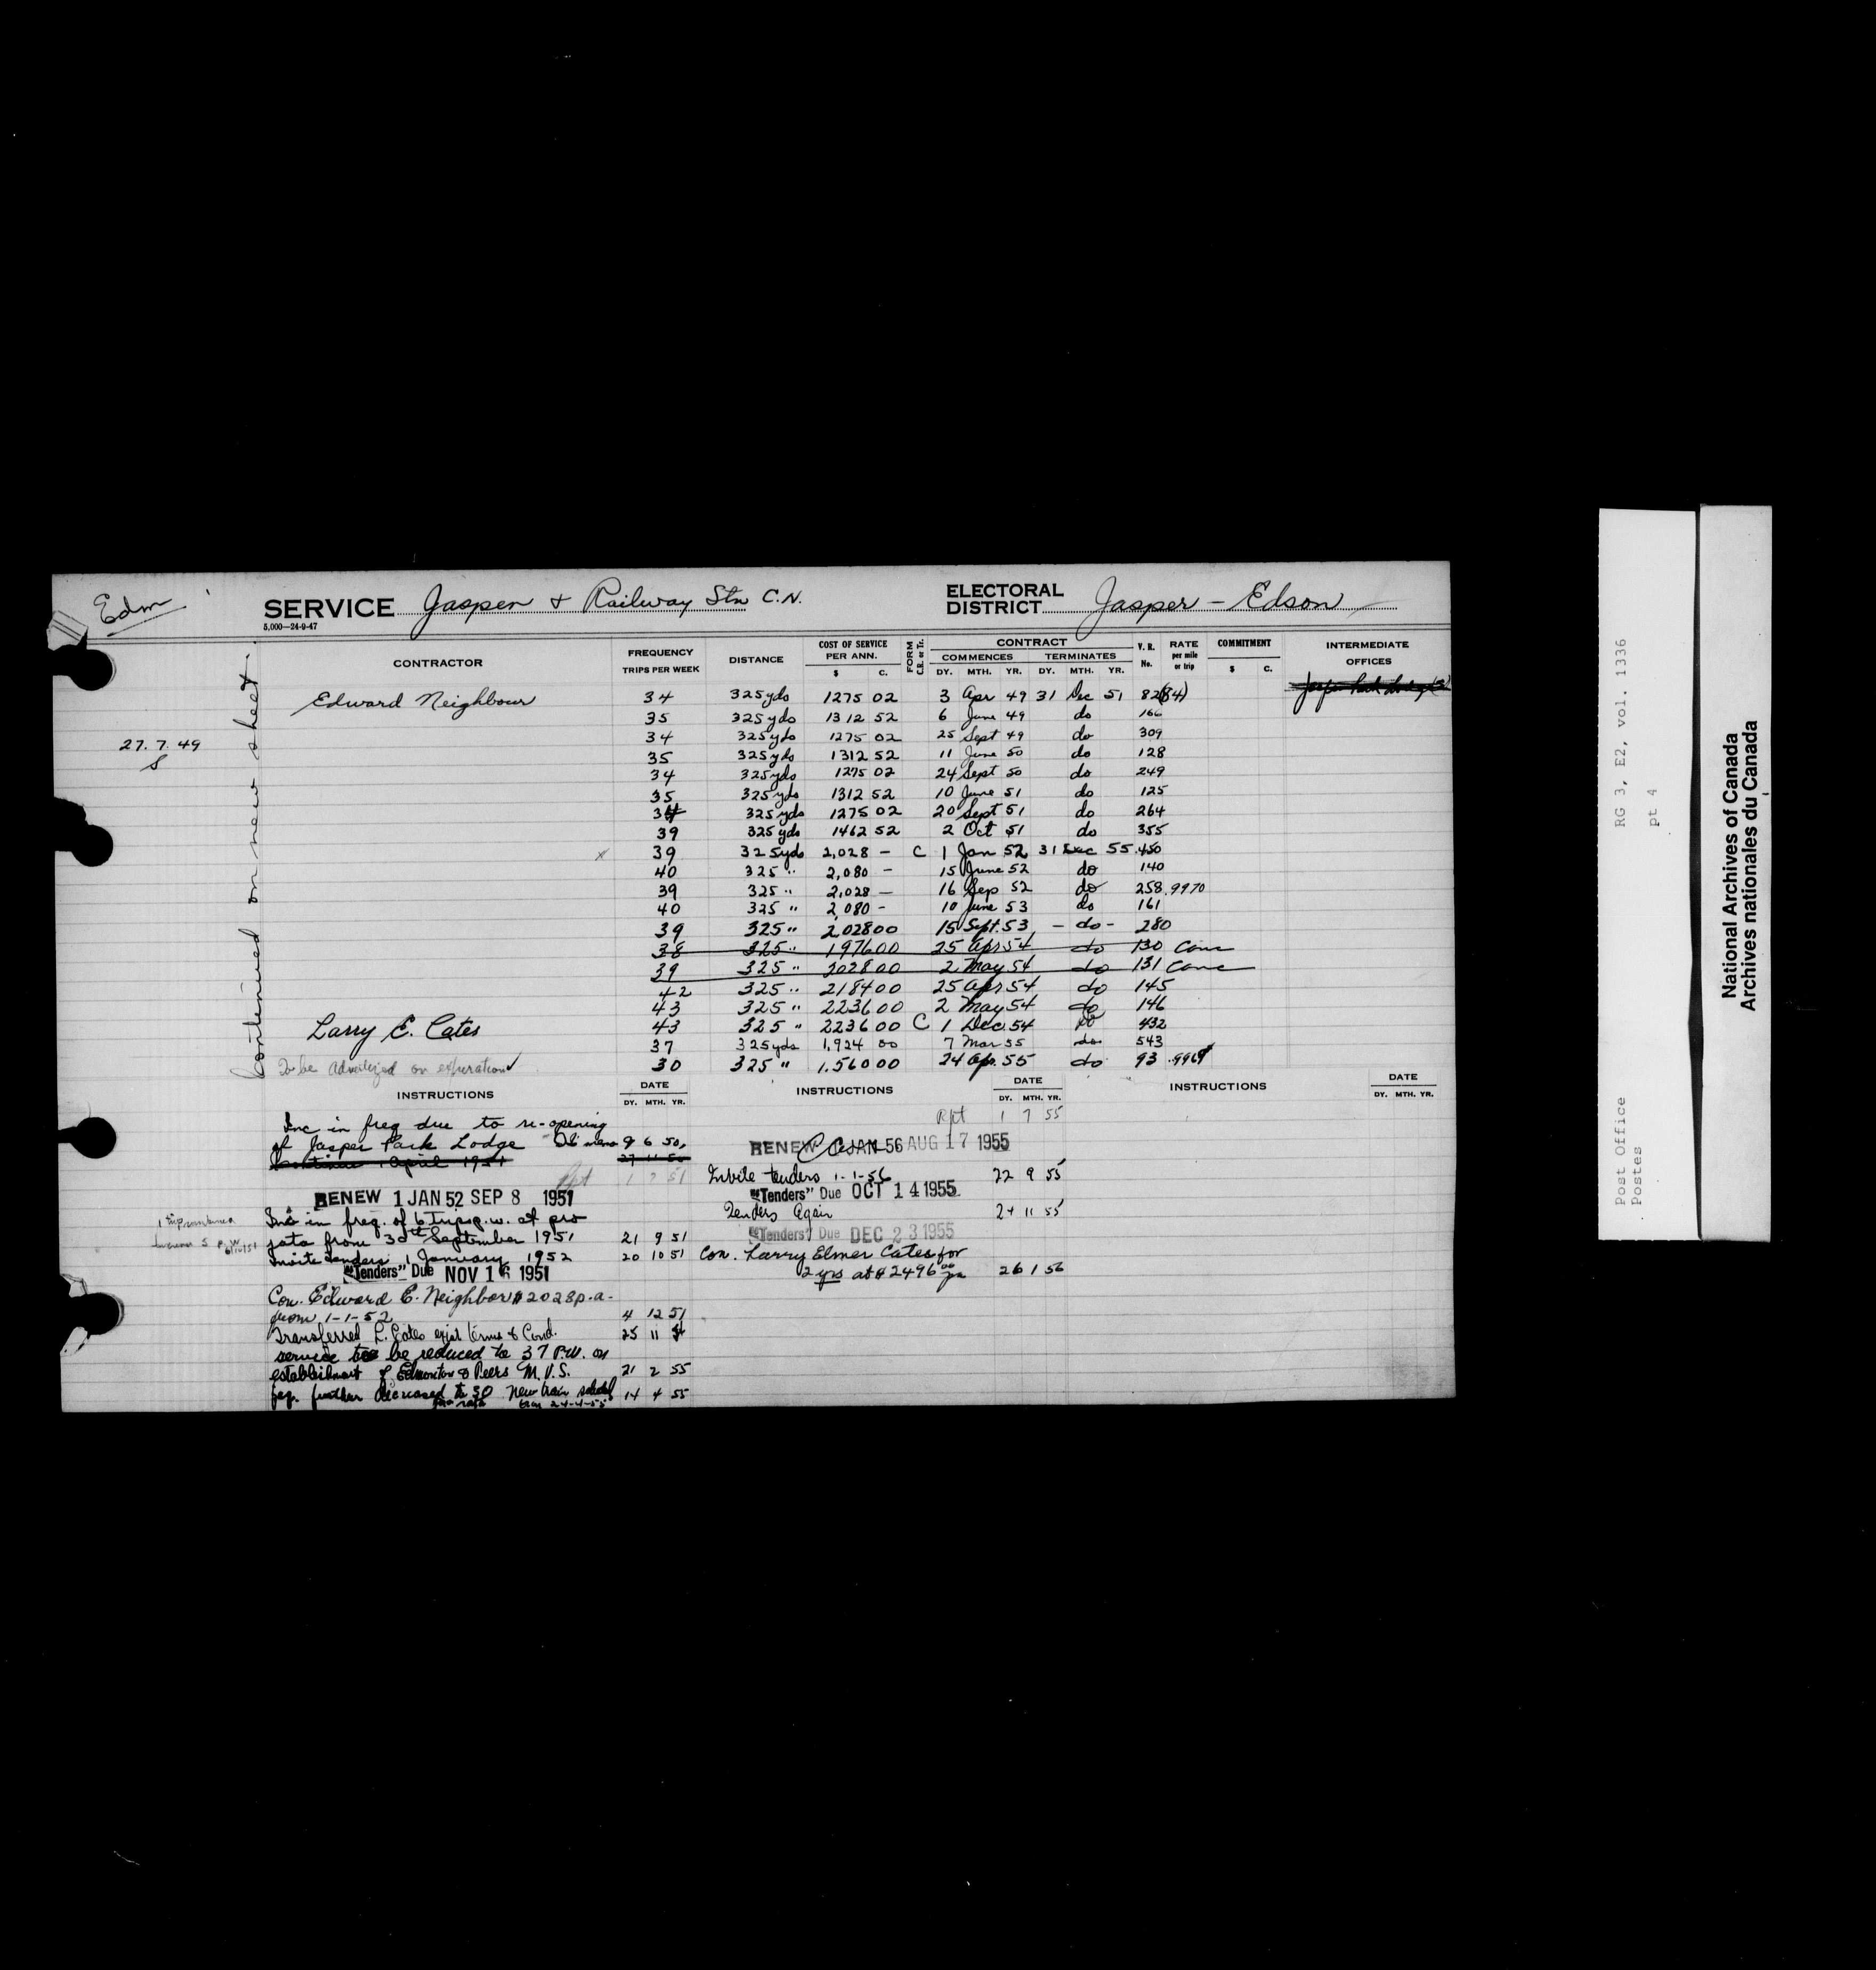 Edm
SERVICE Jasper & Railway Stn C.N. ELECTORAL DISTRICT Jasper - Edson
5,000—24-9-47
CONTRACTOR FREQUENCY TRIPS PER WEEK DISTANCE COST OF SERVICE PER ANN. $ C. FORM C.B. or Tr. CONTRACT COMMENCES DY. MTH. YR. TERMINATES DY. MTH. YR. V. R. No. RATE per mile or trip COMMITMENT $ C. INTERMEDIATE OFFICES
Edward Neighbour 34 325yds 1275 02 3 Apr 49 31 Dec 51 82(34) Jasper Park Lodge
35 325yds 1312 52 6 June 49 do 166
27.7.49 34 325yds 1275 02 25 Sept 49 do 309
S 35 325yds 1312 52 11 June 50 do 128
34 325yds 1275 02 24 Sept 50 do 249
35 325yds 1312 52 10 June 51 do 125
34 325yds 1275 02 20 Sept 51 do 264
39 325yds 1462 52 2 Oct 51 do 355
x 39 325yds 2,028 - C 1 Jan 52 31 Dec 55 450
40 325 " 2,080 - 15 June 52 do 140
39 325 " 2,028 - 16 Sep 52 do 258 .9970
40 325 " 2,080 - 10 June 53 do 161
39 325 " 2,028 00 15 Sept. 53 - do - 280
38 325 " 1976 00 25 Apr 54 do 130 Canc
39 325 " 2028 00 2 May 54 do 131 Canc
42 325 " 2184 00 25 Apr 54 do 145
43 325 " 2236 00 2 May 54 do 146
Larry E. Cates 43 325 " 2236 00 C 1 Dec. 54 do 432
37 325yds 1,924 00 7 Mar 55 do 543
To be advertized on expiration 30 325 " 1,560 00 24 Apr. 55 do 93
Continued on new sheet.
INSTRUCTIONS DATE DY. MTH. YR. INSTRUCTIONS DATE DY. MTH. YR. INSTRUCTIONS DATE DY. MTH. YR.
Inc in freq due to re-opening
of Jasper Park Lodge memo 9 6 50
Continue 1 April 1951 27 11 50
Rpt 1 7 51
RENEW 1 JAN 52 SEP 8 1951
Inc in freq. of 6 Trips p.w. at pro
rata from 30th September 1951 21 9 51
Invite tenders 1 January 1952 20 10 51
"Tenders" Due NOV 16 1951
Con. Edward E. Neighbor $2028 p.a.
from 1-1-52 4 12 51
Transferred L. Cates exist terms & Cond. 25 11 54
service to be reduced to 37 P.W. on
establishment of Edmonton & Peers M.V.S. 21 2 55
freq. further decreased to 30 New train sched 14 4 55
pro rata from 24-4-55
Rpt 1 7 55
RENEW JAN 56 AUG 17 1955
Invite tenders 1-1-56 22 9 55
"Tenders" Due OCT 14 1955
Tenders Again 24 11 55
"Tenders" Due DEC 23 1955
Con. Larry Elmer Cates for
2 yrs at $2496 00 pa 26 1 56
Post Office RG 3, E2, vol. 1336
Postes pt 4
National Archives of Canada
Archives nationales du Canada